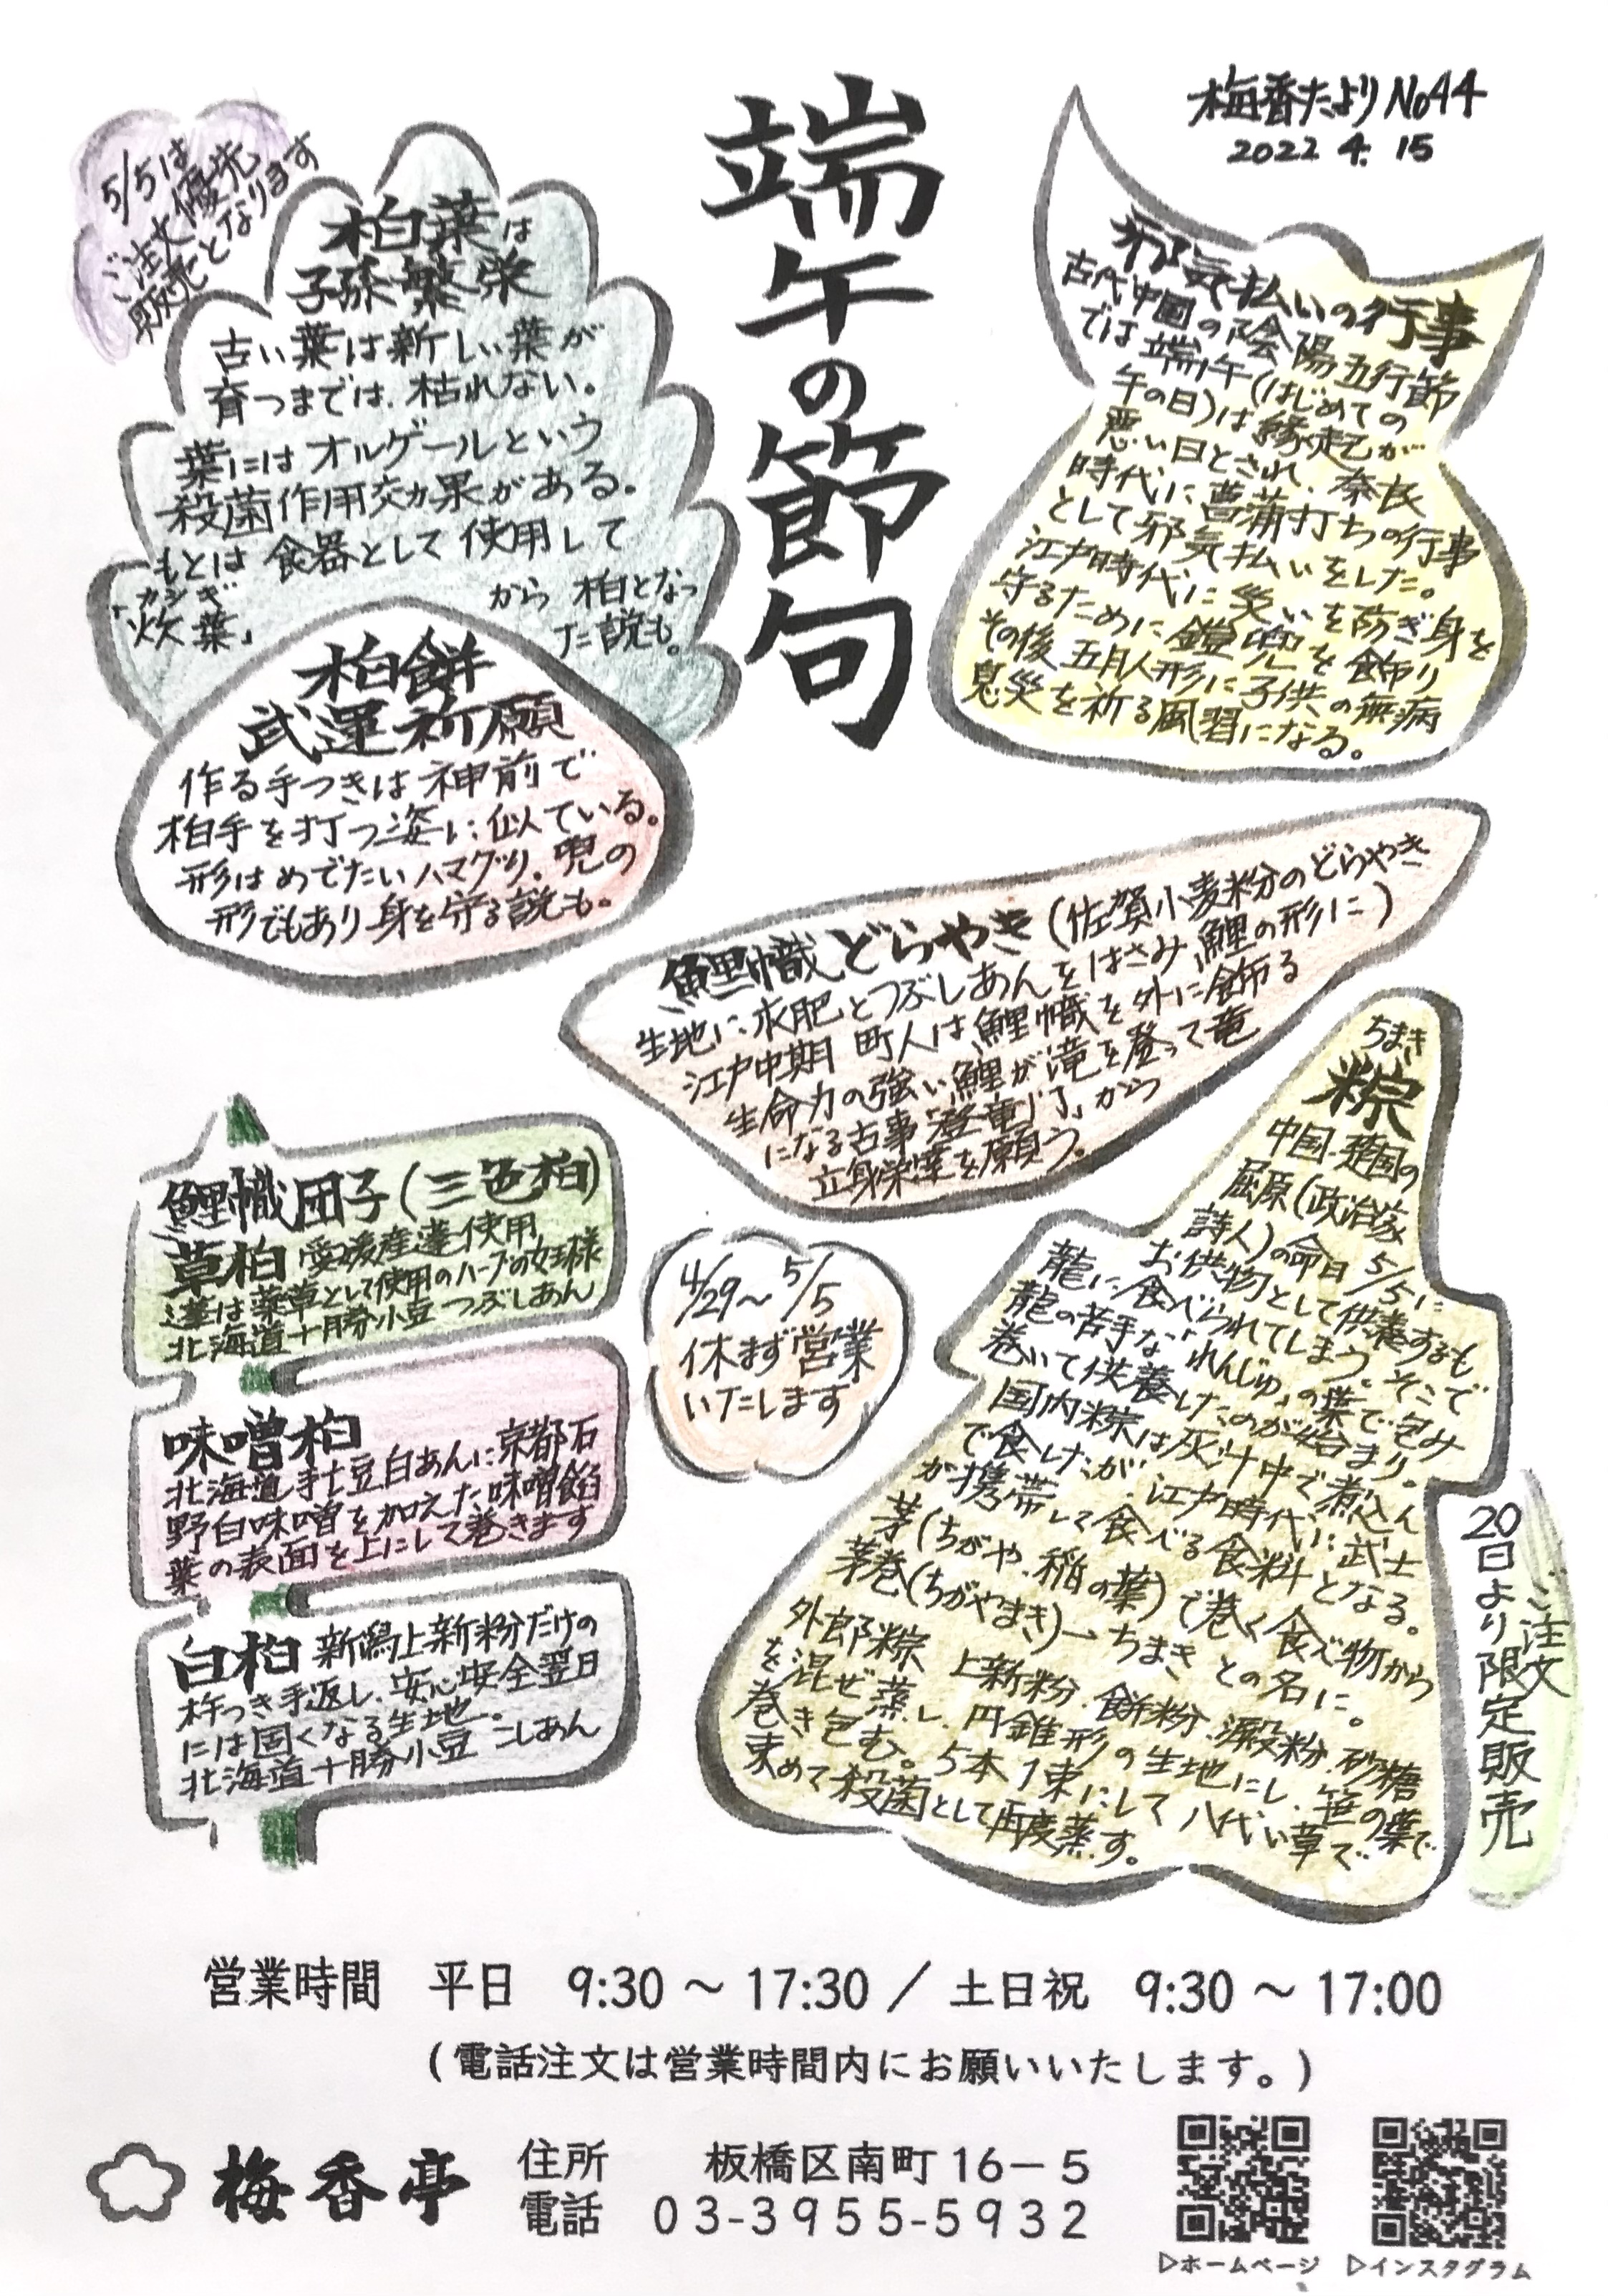 梅香たより No44
2022 4. 15
端午の節句
邪気払いの行事
古代中国の陰陽五行節
では端午(はじめての
午の日)は縁起が
悪い日とされ、奈良
時代に菖蒲打ちの行事
として邪気払いをした。
江戸時代に災いを防ぎ身を
守るために鎧兜を飾り
その後五月人形に子供の無病
息災を祈る風習になる。
5/5は
ご注文優先
販売となります
柏葉は
子孫繁栄
古い葉は新しい葉が
育つまでは、枯れない。
葉にはオルゲールという
殺菌作用効果がある。
もとは食器として使用して
カシギ
「炊葉」
から柏となっ
た説も。
柏餅
武運祈願
作る手つきは神前で
柏手を打つ姿に似ている。
形はめでたいハマグリ、兜の
形でもあり身を守る説も。
鯉幟どらやき(佐賀小麦粉のどらやき
生地に求肥とつぶしあんをはさみ鯉の形に)
江戸中期 町人は鯉幟を外に飾る
生命力の強い鯉が滝を登って竜
になる古事「登竜門」から
立身栄達を願う。
ちまき
粽
中国-楚国の
屈原(政治家
詩人)の命日 5/5に
お供物として供養するも
龍に食べられてしまう。そこで
龍の苦手な「れんじゅ」の葉で包み
巻いて供養したのが始まり。
国内粽は灰汁中で煮込ん
で食したが、江戸時代に武士
が携帯して食べる食料となる。
茅(ちがや、稲の葉)で巻く食べ物から
茅巻(ちがやまき)→ちまきとの名に。
外郎粽 上新粉、餅粉、澱粉、砂糖
を混ぜ蒸し、円錐形の生地にし、笹の葉で
巻き包む。5本1束にして八代い草で
束めて殺菌として再度蒸す。
ご注文
20日より限定販売
4/29〜5/5
休まず営業
いたします
鯉幟団子(三色柏)
草柏 愛媛産蓬使用
蓬は薬草として使用のハーブの女王様
北海道十勝小豆 つぶしあん
味噌柏
北海道手亡豆白あんに京都石
野白味噌を加えた味噌餡
葉の表面を上にして巻きます
白柏 新潟上新粉だけの
杵つき手返し、安心安全翌日
には固くなる生地。
北海道十勝小豆 こしあん
営業時間 平日 9:30 〜 17:30 / 土日祝 9:30 〜 17:00
(電話注文は営業時間内にお願いいたします。)
梅香亭
住所 板橋区南町16−5
電話 03-3955-5932
▷ホームページ
▷インスタグラム